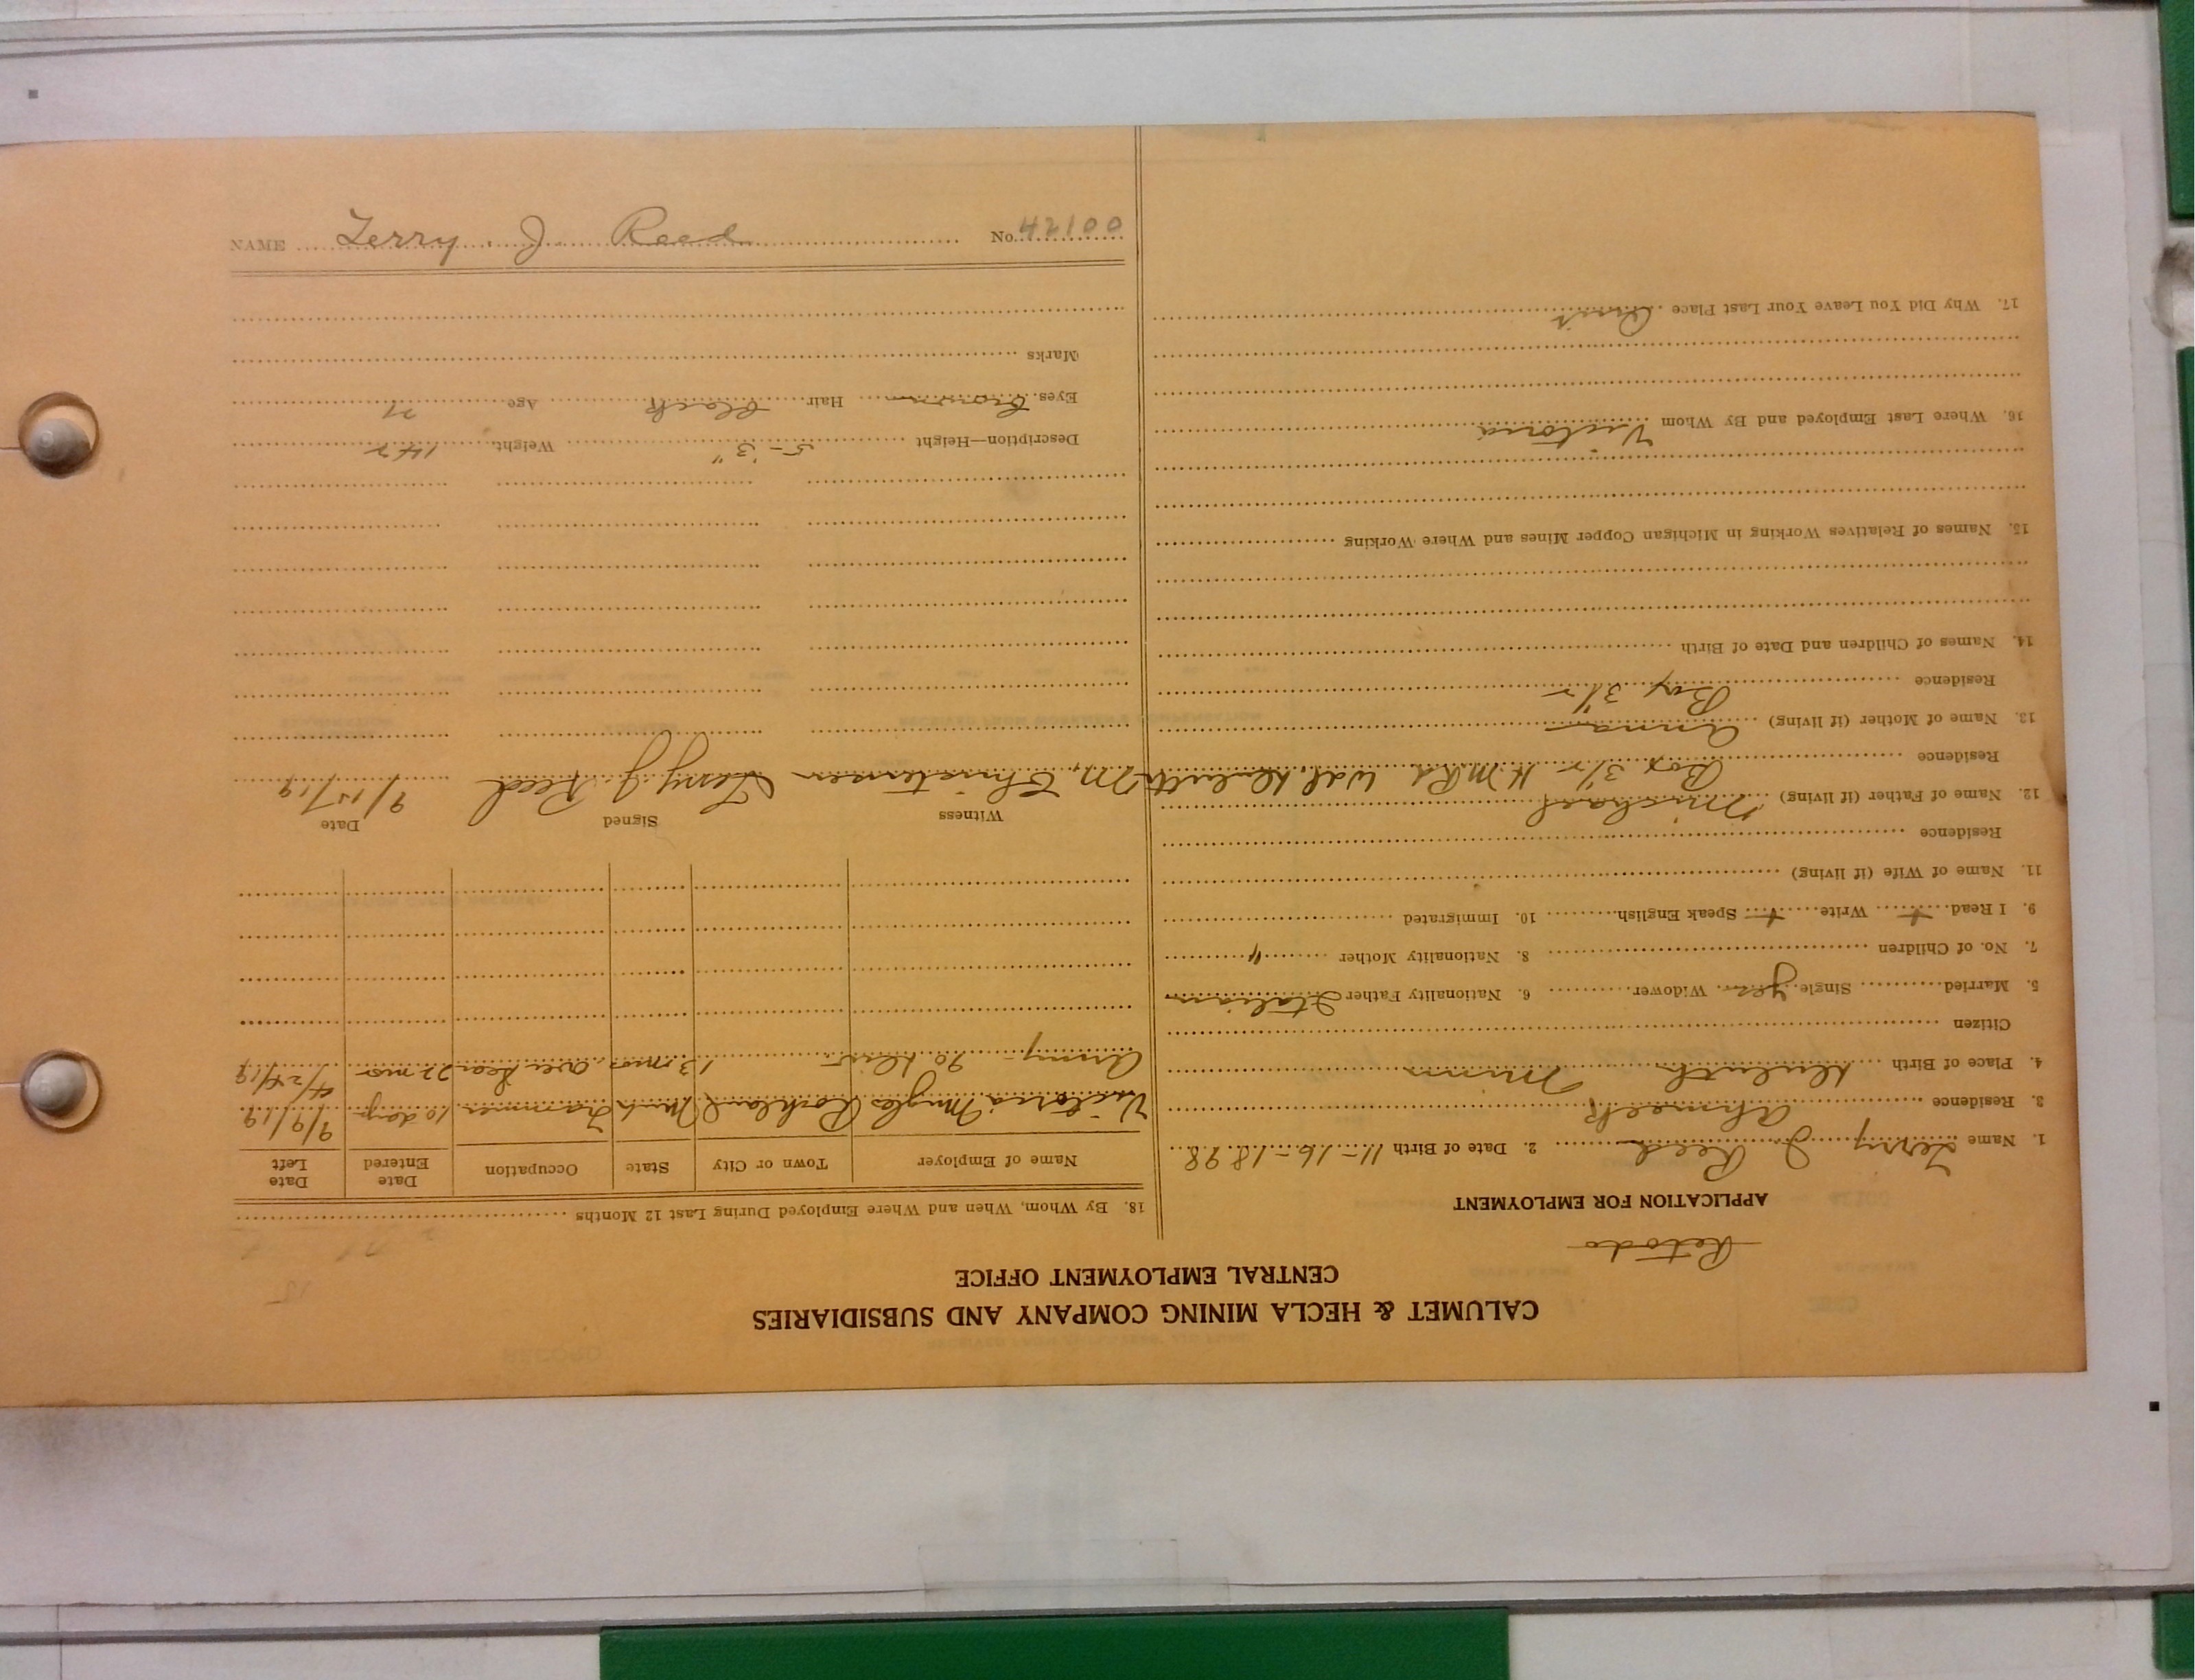 CALUMET & HECLA MINING COMPANY AND SUBSIDIARIES
CENTRAL EMPLOYMENT OFFICE
Retodo
APPLICATION FOR EMPLOYMENT
1. Name Terry J. Reed 2. Date of Birth 11-16-1898
3. Residence Ahmeek
4. Place of Birth Duluth Minn
Citizen
5. Married Single yes Widower 6. Nationality Father Italian
7. No. of Children 8. Nationality Mother "
9. I Read + Write + Speak English 10. Immigrated
11. Name of Wife (if living)
Residence
12. Name of Father (if living) Michael
Residence Box 31 Rd Duluth
13. Name of Mother (if living) Anna
Residence Box 31
14. Names of Children and Date of Birth
15. Names of Relatives Working in Michigan Copper Mines and Where Working
16. Where Last Employed and By Whom Victoria
17. Why Did You Leave Your Last Place Quit
18. By Whom, When and Where Employed During Last 12 Months
Name of Employer Town or City State Occupation Date Entered Date Left
Victoria Rockland Mich Trammer 10 days 9/9/19
Army 13 mos. over Sea 22 mos 4/24/19
Witness Signed Date
M. Christensen Terry J. Reed 9/15/19
Description—Height 5-3" Weight 142
Eyes Brown Hair Black Age 21
Marks
NAME Terry J. Reed No. 42100